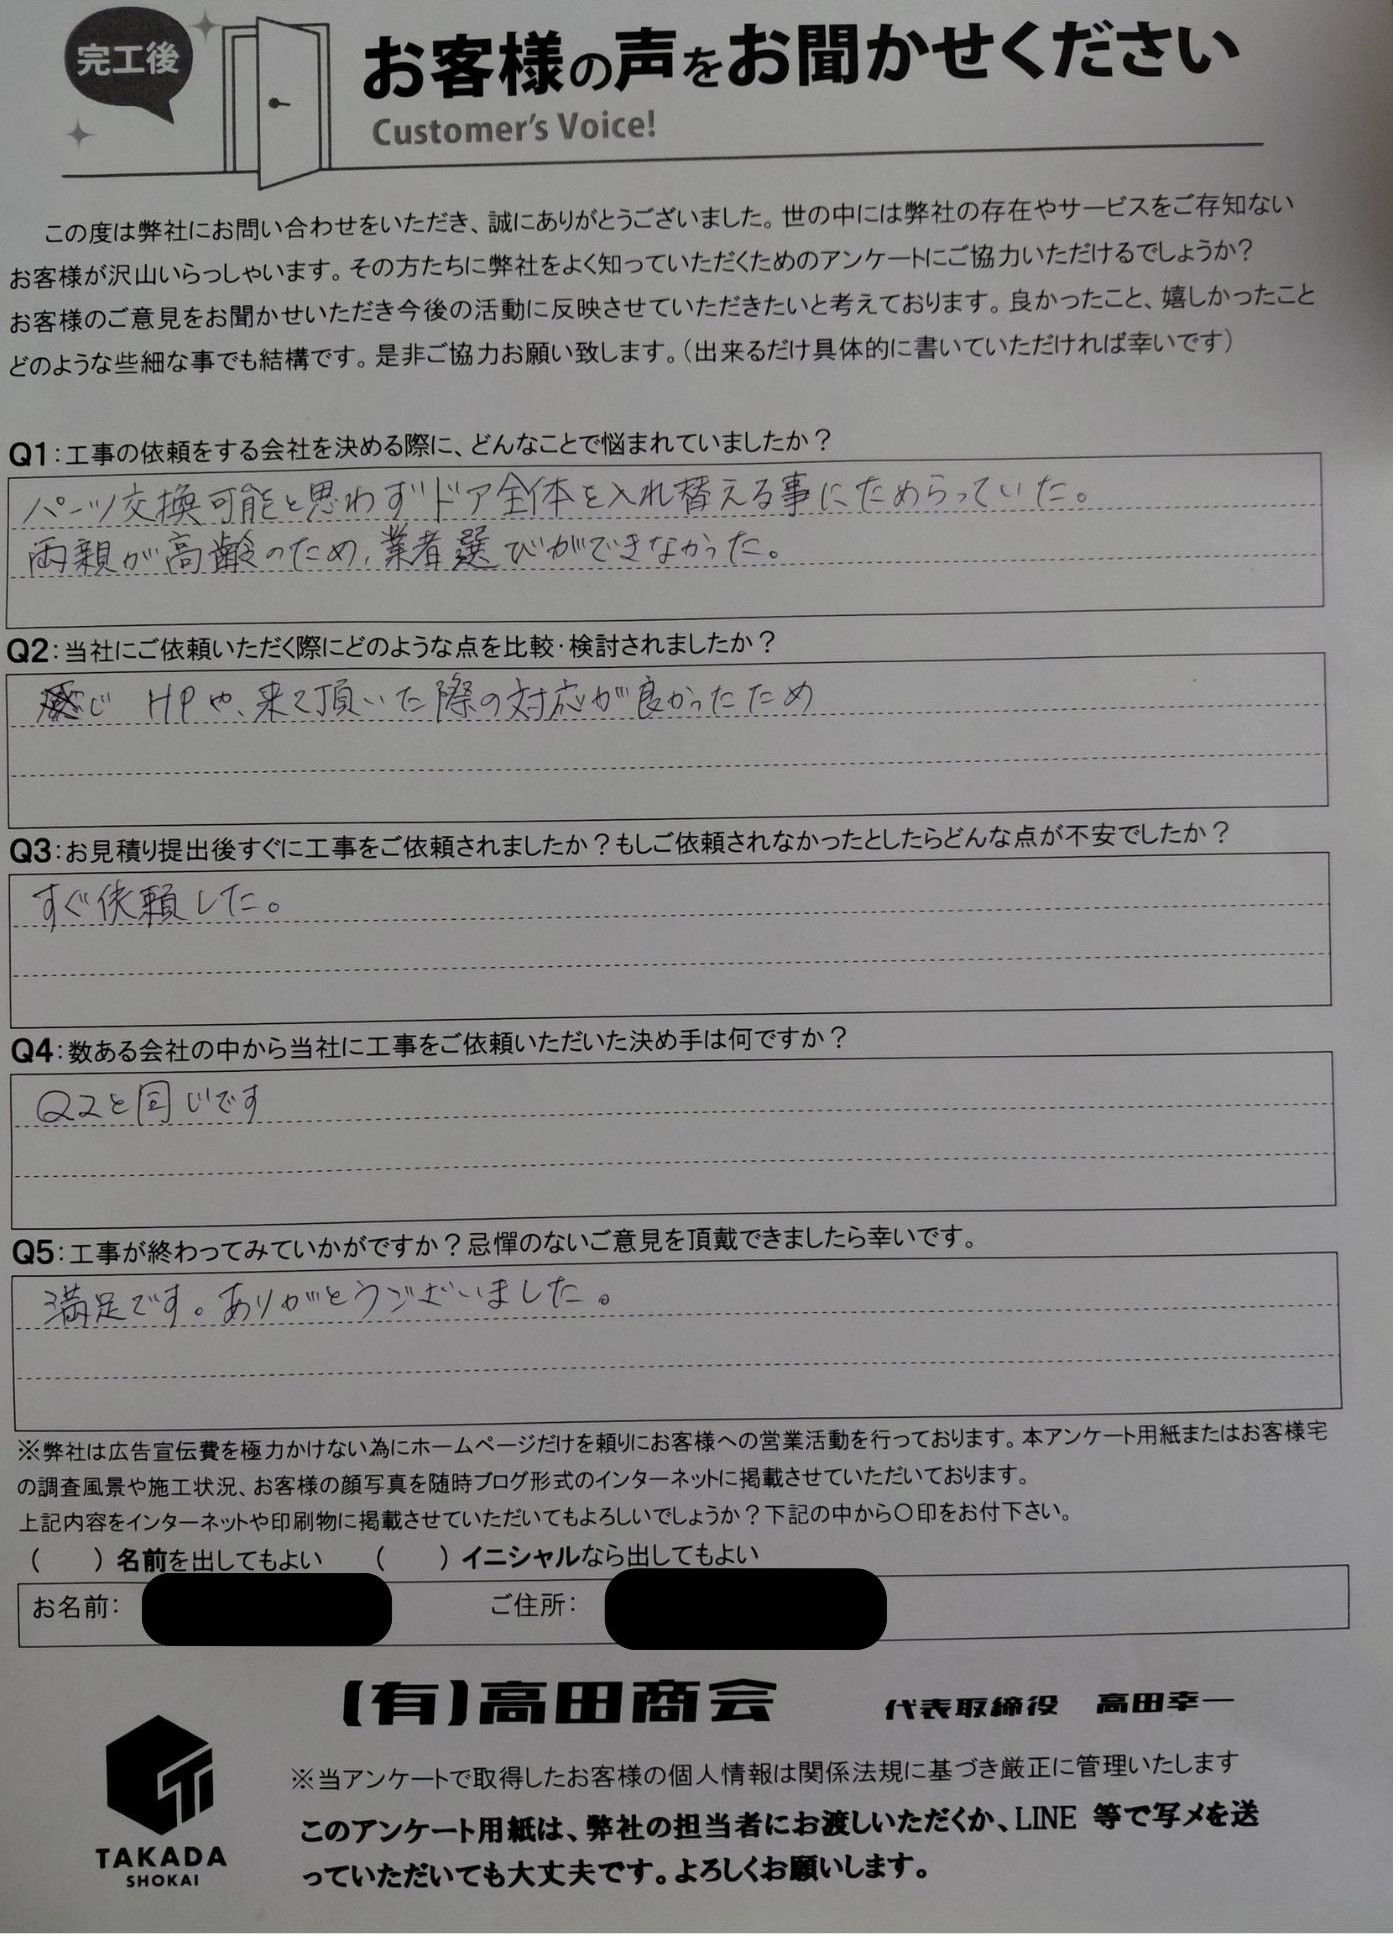 完工後
お客様の声をお聞かせください
Customer's Voice!
この度は弊社にお問い合わせをいただき、誠にありがとうございました。世の中には弊社の存在やサービスをご存知ない
お客様が沢山いらっしゃいます。その方たちに弊社をよく知っていただくためのアンケートにご協力いただけるでしょうか?
お客様のご意見をお聞かせいただき今後の活動に反映させていただきたいと考えております。良かったこと、嬉しかったこと
どのような些細な事でも結構です。是非ご協力お願い致します。(出来るだけ具体的に書いていただければ幸いです)
Q1:工事の依頼をする会社を決める際に、どんなことで悩まれていましたか?
パーツ交換可能と思わずドア全体を入れ替える事にためらっていた。
両親が高齢のため、業者選びができなかった。
Q2:当社にご依頼いただく際にどのような点を比較・検討されましたか?
じ HPや、来て頂いた際の対応が良かったため
Q3:お見積り提出後すぐに工事をご依頼されましたか?もしご依頼されなかったとしたらどんな点が不安でしたか?
すぐ依頼した。
Q4:数ある会社の中から当社に工事をご依頼いただいた決め手は何ですか?
Q2と同じです
Q5:工事が終わってみていかがですか?忌憚のないご意見を頂戴できましたら幸いです。
満足です。ありがとうございました。
※弊社は広告宣伝費を極力かけない為にホームページだけを頼りにお客様への営業活動を行っております。本アンケート用紙またはお客様宅
の調査風景や施工状況、お客様の顔写真を随時ブログ形式のインターネットに掲載させていただいております。
上記内容をインターネットや印刷物に掲載させていただいてもよろしいでしょうか?下記の中から〇印をお付下さい。
( )名前を出してもよい ( )イニシャルなら出してもよい
お名前: ご住所:
(有)高田商会 代表取締役 高田幸一
※当アンケートで取得したお客様の個人情報は関係法規に基づき厳正に管理いたします
このアンケート用紙は、弊社の担当者にお渡しいただくか、LINE 等で写メを送
っていただいても大丈夫です。よろしくお願いします。
TAKADA
SHOKAI